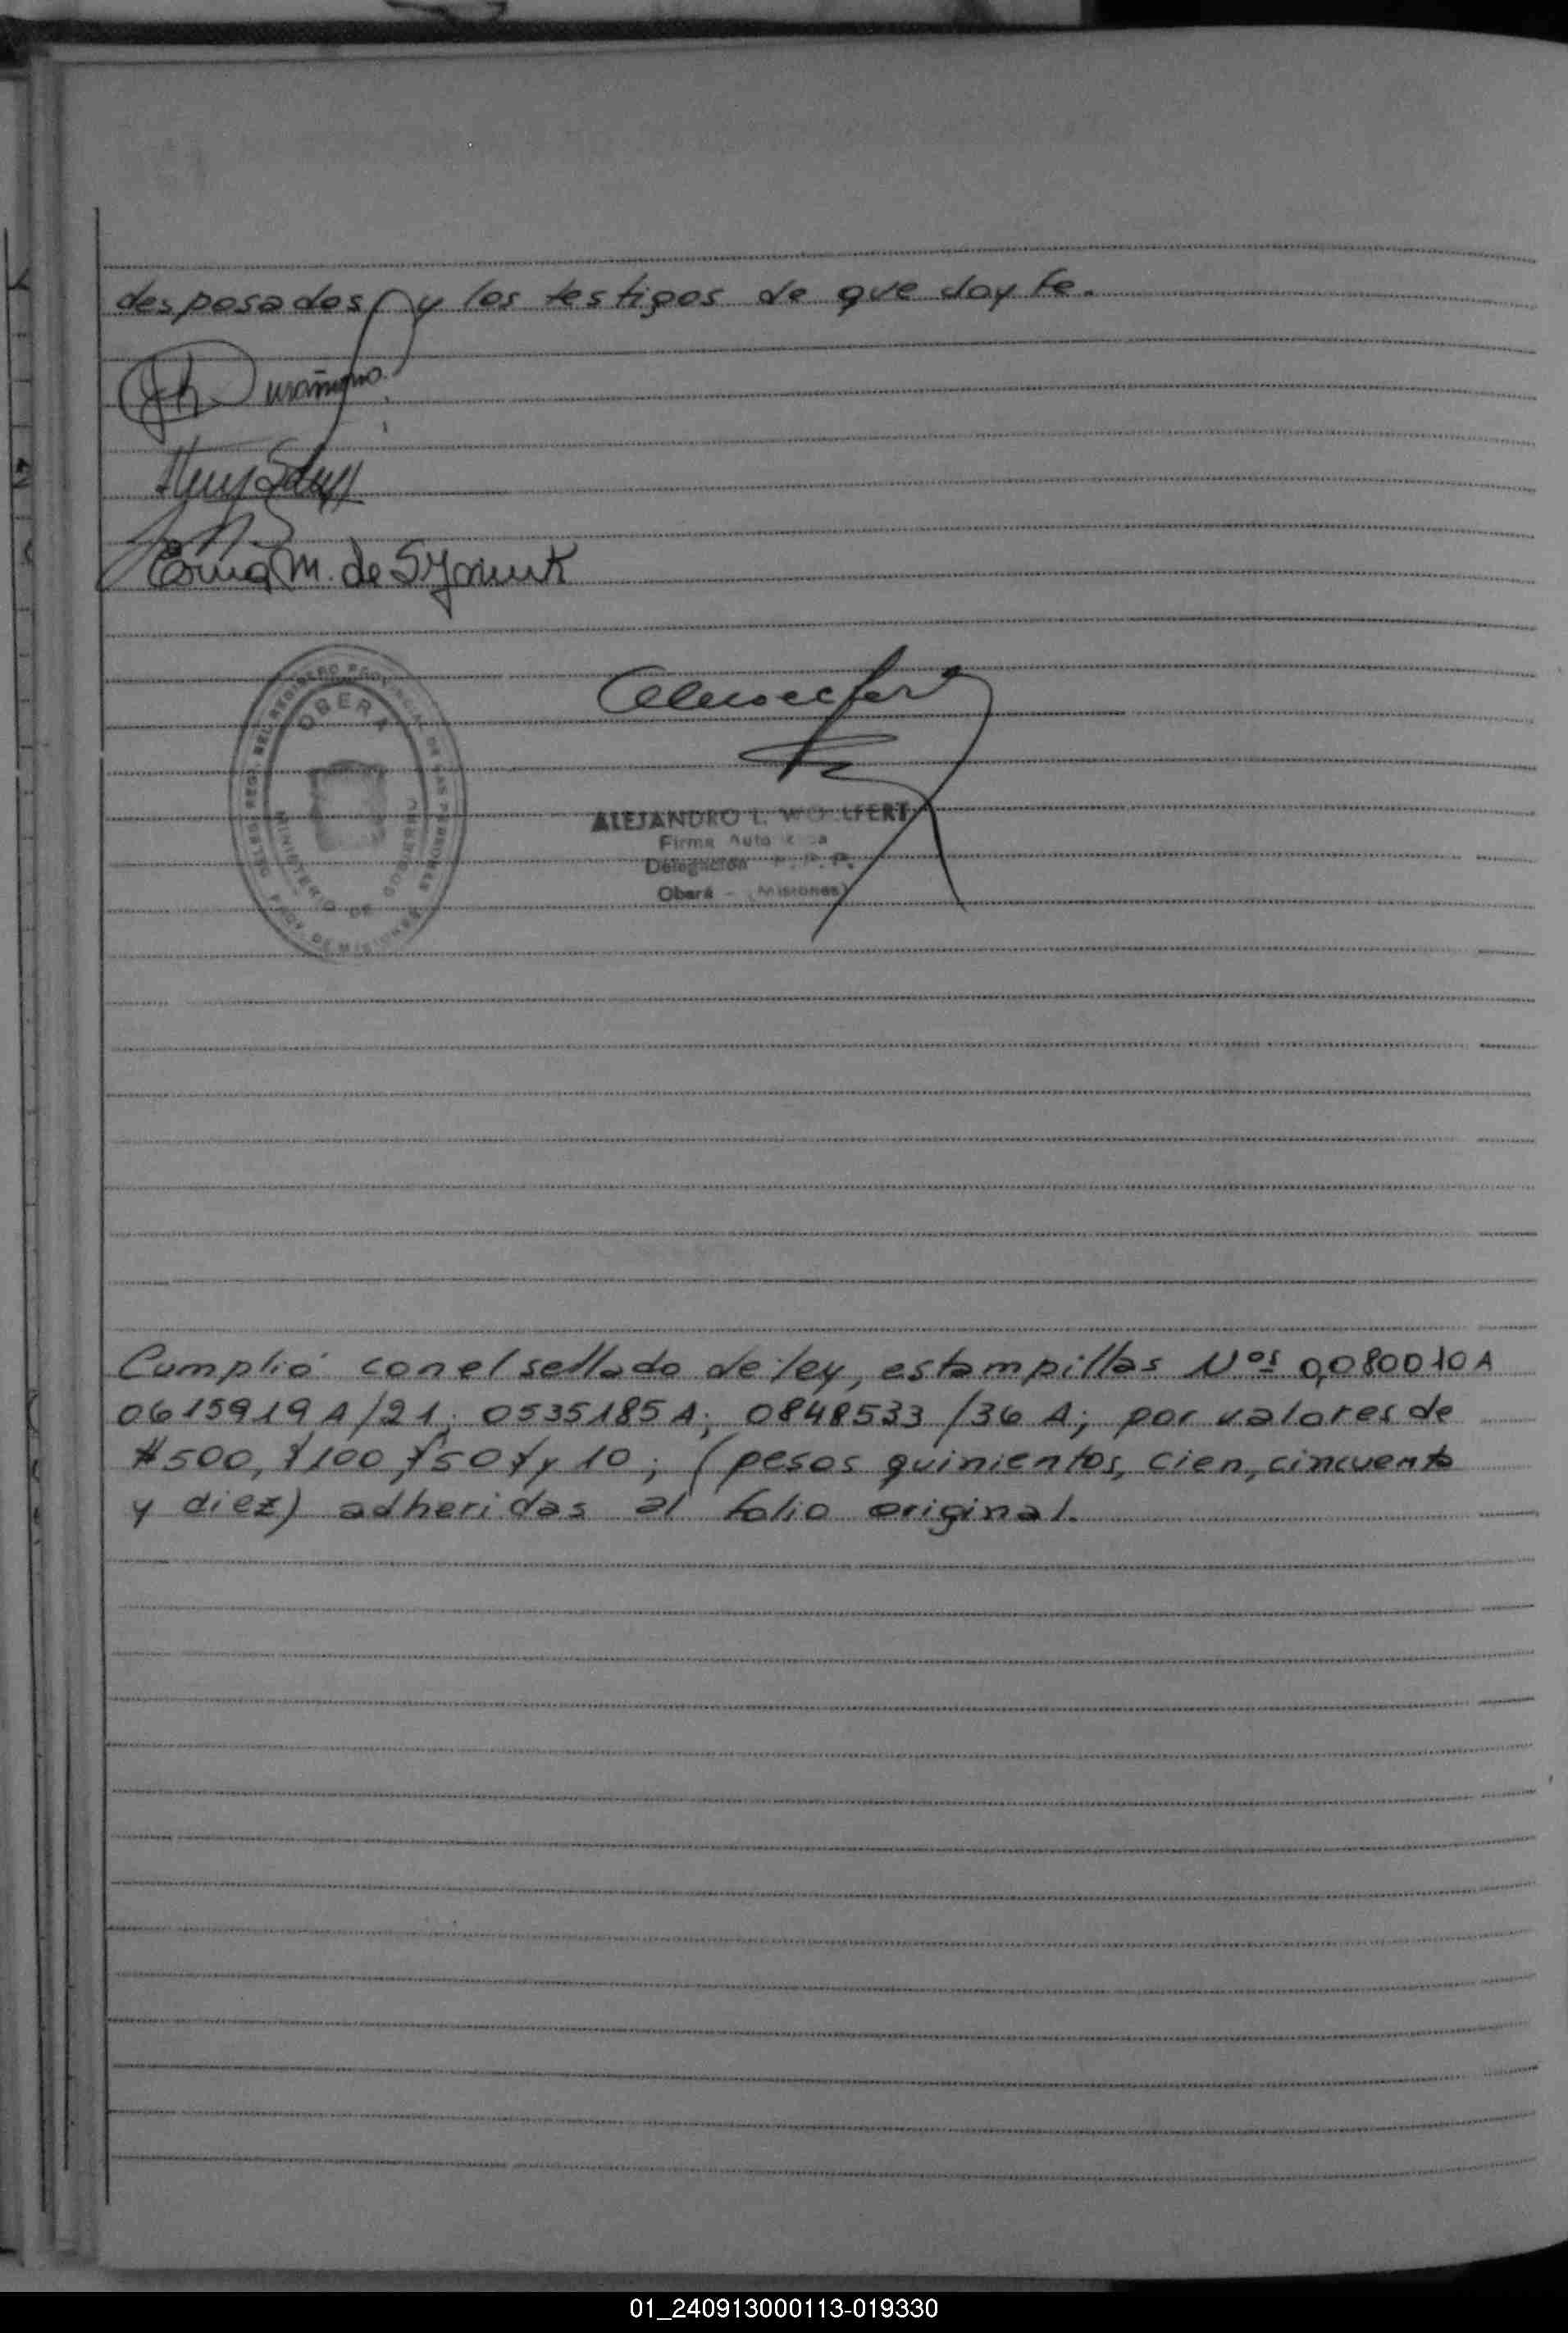 desposados y los testigos de que doy fe.
M. de
OBERA
MINISTERIO DE GOBIERNO
PROV. DE MISIONES
ALEJANDRO L. WOLLFERT
Firma
Delegación R.P.P.
Oberá - (Misiones)
Cumplió con el sellado de ley, estampillas Nos 0,080010 A
0615919 A/21; 0535185 A; 0848533/36 A; por valores de
$500, $100, $50 y 10; (pesos quinientos, cien, cincuenta
y diez) adheridas al folio original.
01_240913000113-019330